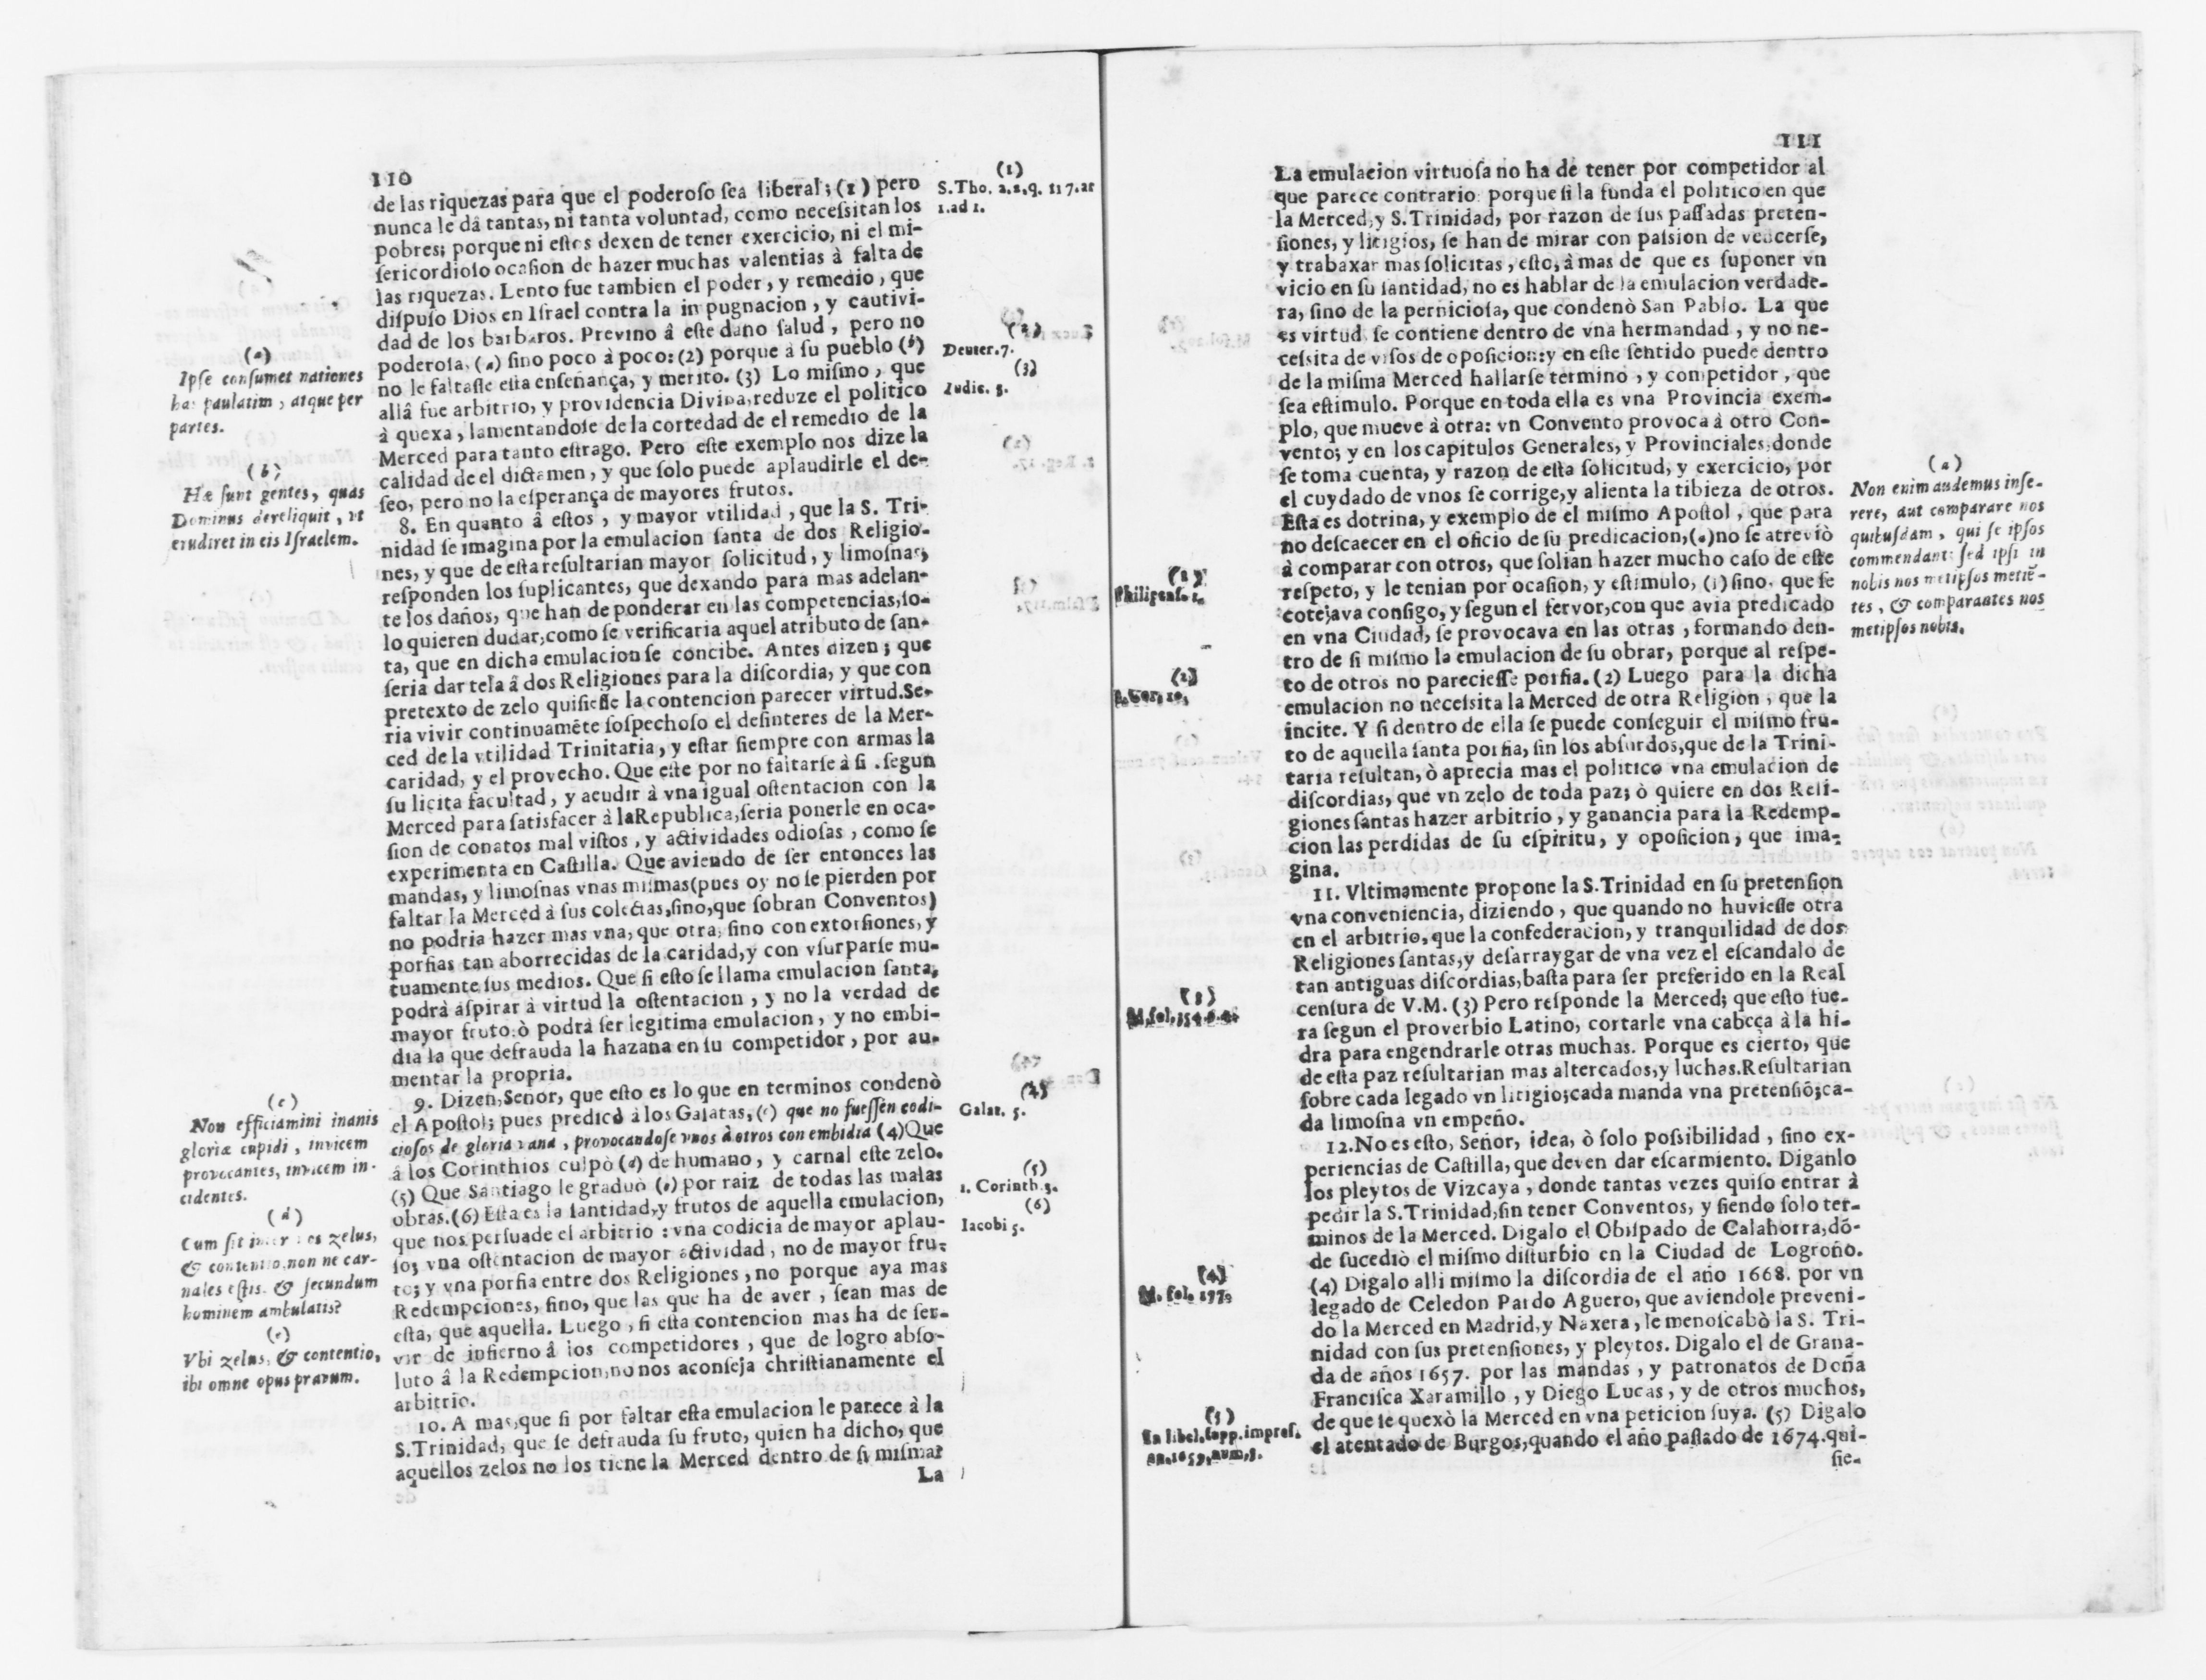 110
de las riquezas para que el poderoso sea liberal; (1) pero
nunca le dâ tantas, ni tanta voluntad, como necessitan los
pobres; porque ni estos dexen de tener exercicio, ni el mi-
sericordioso ocasion de hazer muchas valentias à falta de
las riquezas. Lento fue tambien el poder, y remedio, que
dispuso Dios en Israel contra la impugnacion, y cautivi-
dad de los barbaros. Previno â este daño salud, pero no
poderosa, (a) sino poco à poco: (2) porque à su pueblo (b)
no le faltasse esta enseñança, y merito. (3) Lo mismo, que
allâ fue arbitrio, y providencia Divina, reduze el politico
à quexa, lamentandose de la cortedad de el remedio de la
Merced para tanto estrago. Pero este exemplo nos dize la
calidad de el dictamen, y que solo puede aplaudirle el de-
seo, pero no la esperança de mayores frutos.
8. En quanto â estos, y mayor vtilidad, que la S. Tri-
nidad se imagina por la emulacion santa de dos Religio-
nes, y que de esta resultarian mayor solicitud, y limosnas;
responden los suplicantes, que dexando para mas adelan-
te los daños, que han de ponderar en las competencias, so-
lo quieren dudar, como se verificaria aquel atributo de san-
ta, que en dicha emulacion se concibe. Antes dizen; que
seria dar tela â dos Religiones para la discordia, y que con
pretexto de zelo quisiesse la contencion parecer virtud. Se-
ria vivir continuamēte sospechoso el desinteres de la Mer-
ced de la vtilidad Trinitaria, y estar siempre con armas la
caridad, y el provecho. Que este por no faltarse à si . segun
su licita facultad, y acudir à vna igual ostentacion con la
Merced para satisfacer à la Republica, seria ponerle en oca-
sion de conatos mal vistos, y actividades odiosas, como se
experimenta en Castilla. Que aviendo de ser entonces las
mandas, y limosnas vnas mismas (pues oy no se pierden por
faltar la Merced à sus colectas, sino, que sobran Conventos)
no podria hazer mas vna, que otra, sino con extorsiones, y
porfias tan aborrecidas de la caridad, y con vsurparse mu-
tuamente sus medios. Que si esto se llama emulacion santa,
podrà aspirar à virtud la ostentacion, y no la verdad de
mayor fruto. ò podrà ser legitima emulacion, y no embi-
dia la que defrauda la hazana en su competidor, por au-
mentar la propria.
9. Dizen, Señor, que esto es lo que en terminos condenò
el Apostol; pues predicò à los Galatas, (c) que no fuessen codi-
ciosos de gloria vana, provocandose vnos à otros con embidia (4) Que
â los Corinthios culpò (d) de humano, y carnal este zelo.
(5) Que Santiago le graduò (e) por raiz de todas las malas
obras. (6) Esta es la santidad, y frutos de aquella emulacion,
que nos persuade el arbitrio: vna codicia de mayor aplau-
so; vna ostentacion de mayor actividad, no de mayor fru-
to; y vna porfia entre dos Religiones, no porque aya mas
Redempciones, sino, que las que ha de aver, sean mas de
esta, que aquella. Luego, si esta contencion mas ha de ser-
vir de infierno â los competidores, que de logro abso-
luto â la Redempcion, no nos aconseja christianamente el
arbitrio.
10. A mas, que si por faltar esta emulacion le parece à la
S. Trinidad, que se defrauda su fruto, quien ha dicho, que
aquellos zelos no los tiene la Merced dentro de si misma?
La
(a)
Ipse consumet nationes
has paulatim, atque per
partes.
(b)
Hæ sunt gentes, quas
Dominus dereliquit, vt
erudiret in eis Israelem.
(c)
Non efficiamini inanis
gloriæ cupidi, invicem
provocantes, invicem in-
videntes.
(d)
Cum sit inter vos zelus,
& contentio, non ne car-
nales estis, & secundum
hominem ambulatis?
(e)
Vbi zelus, & contentio,
ibi omne opus pravum.
(1)
S. Tho. 2. 2. q. 117. ar
1. ad 1.
(2)
Deuter. 7.
(3)
Iudic. 3.
(4)
Galat. 5.
(5)
1. Corinth. 3.
(6)
Iacobi 5.
111
La emulacion virtuosa no ha de tener por competidor al
que parece contrario: porque si la funda el politico en que
la Merced, y S. Trinidad, por razon de sus passadas preten-
siones, y litigios, se han de mirar con passion de vencerse,
y trabaxar mas solicitas, esto, à mas de que es suponer vn
vicio en su santidad, no es hablar de la emulacion verdade-
ra, sino de la perniciosa, que condenò San Pablo. La que
es virtud se contiene dentro de vna hermandad, y no ne-
cessita de visos de oposicion: y en este sentido puede dentro
de la misma Merced hallarse termino, y competidor, que
sea estimulo. Porque en toda ella es vna Provincia exem-
plo, que mueve à otra: vn Convento provoca à otro Con-
vento; y en los capitulos Generales, y Provinciales, donde
se toma cuenta, y razon de esta solicitud, y exercicio, por
el cuydado de vnos se corrige, y alienta la tibieza de otros.
Esta es dotrina, y exemplo de el mismo Apostol, que para
no descaecer en el oficio de su predicacion, (a) no se atreviò
à comparar con otros, que solian hazer mucho caso de este
respeto, y le tenian por ocasion, y estimulo, (1) sino, que se
cotejava consigo, y segun el fervor, con que avia predicado
en vna Ciudad, se provocava en las otras, formando den-
tro de si mismo la emulacion de su obrar, porque al respe-
to de otros no pareciesse porfia. (2) Luego para la dicha
emulacion no necessita la Merced de otra Religion, que la
incite. Y si dentro de ella se puede conseguir el mismo fru-
to de aquella santa porfia, sin los absurdos, que de la Trini-
taria resultan, ò aprecia mas el politico vna emulacion de
discordias, que vn zelo de toda paz; ò quiere en dos Reli-
giones santas hazer arbitrio, y ganancia para la Redemp-
cion las perdidas de su espiritu, y oposicion, que ima-
gina.
11. Vltimamente propone la S. Trinidad en su pretension
vna conveniencia, diziendo, que quando no huviesse otra
en el arbitrio, que la confederacion, y tranquilidad de dos
Religiones santas, y desarraygar de vna vez el escandalo de
tan antiguas discordias, basta para ser preferido en la Real
censura de V.M. (3) Pero responde la Merced; que esto fue-
ra segun el proverbio Latino, cortarle vna cabeça à la hi-
dra para engendrarle otras muchas. Porque es cierto, que
de esta paz resultarian mas altercados, y luchas. Resultarian
sobre cada legado vn litigio; cada manda vna pretensiõ; ca-
da limosna vn empeño.
12. No es esto, Señor, idea, ò solo possibilidad, sino ex-
periencias de Castilla, que deven dar escarmiento. Diganlo
los pleytos de Vizcaya, donde tantas vezes quiso entrar à
pedir la S. Trinidad, sin tener Conventos, y siendo solo ter-
minos de la Merced. Digalo el Obispado de Calahorra, dõ-
de sucediò el mismo disturbio en la Ciudad de Logroño.
(4) Digalo alli mismo la discordia de el año 1668. por vn
legado de Celedon Pardo Aguero, que aviendole preveni-
do la Merced en Madrid, y Naxera, le menoscabò la S. Tri-
nidad con sus pretensiones, y pleytos. Digalo el de Grana-
da de años 1657. por las mandas, y patronatos de Doña
Francisca Xaramillo, y Diego Lucas, y de otros muchos,
de que se quexò la Merced en vna peticion suya. (5) Digalo
el atentado de Burgos, quando el año passado de 1674. qui-
sie-
(1)
Philipens. 1.
(2)
(3)
(4)
M. fol. 177.
(5)
In libel. supp. impres.
an. 1659. num. 3.
(a)
Non enim audemus inse-
rere, aut comparare nos
quibusdam, qui se ipsos
commendant: sed ipsi in
nobis nos metipsos metiē-
tes, & comparantes nos
metipsos nobis.